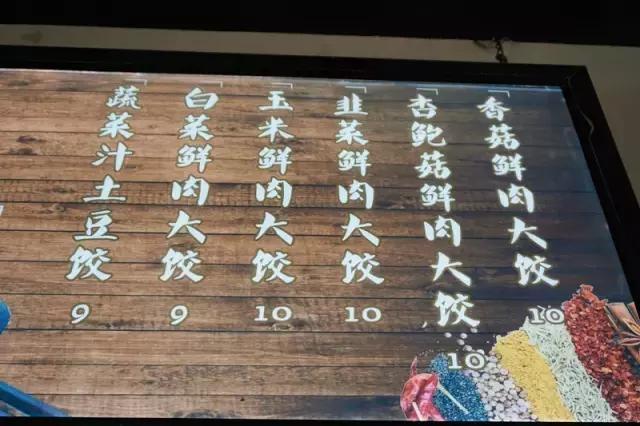 香菇鲜肉大饺
10
杏鲍菇鲜肉大饺
10
韭菜鲜肉大饺
10
玉米鲜肉大饺
10
白菜鲜肉大饺
9
蔬菜汁土豆饺
9